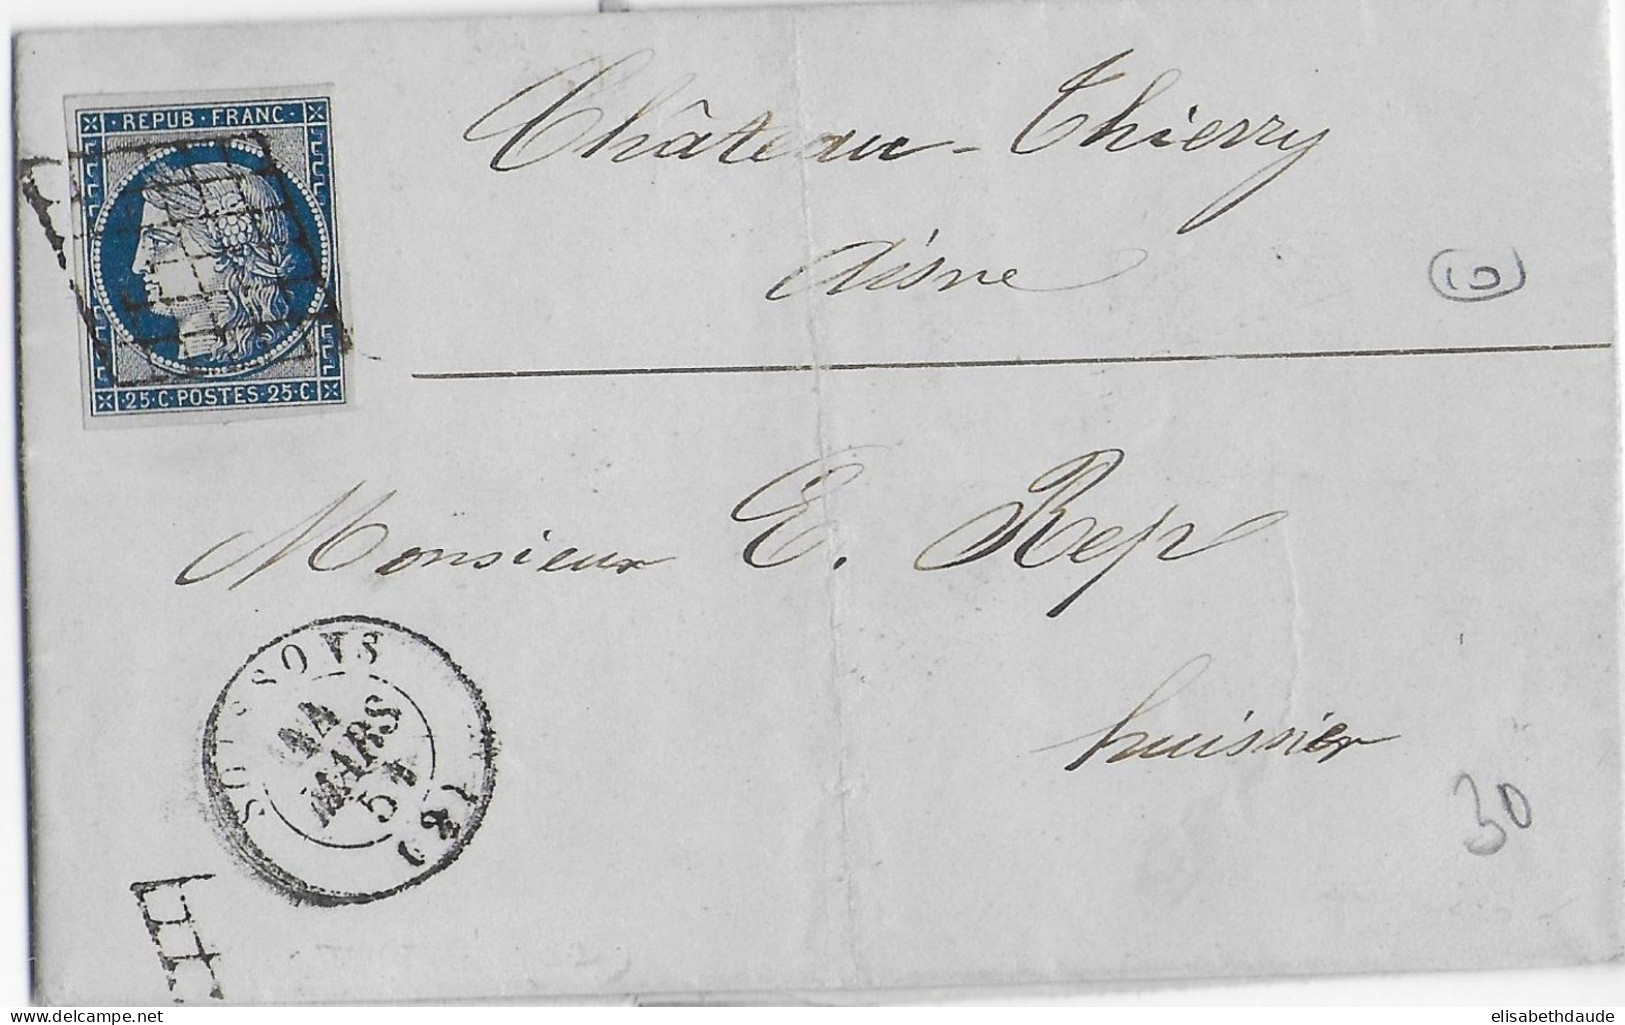 · REPUB · FRANC ·
· 25 · C · POSTES · 25 · C ·
Château-Thierry
Aisne
10
Monsieur E. Rep
huissier
SOISSONS
MARS
51
(2)
30
delcampe.net
elisabethdaude